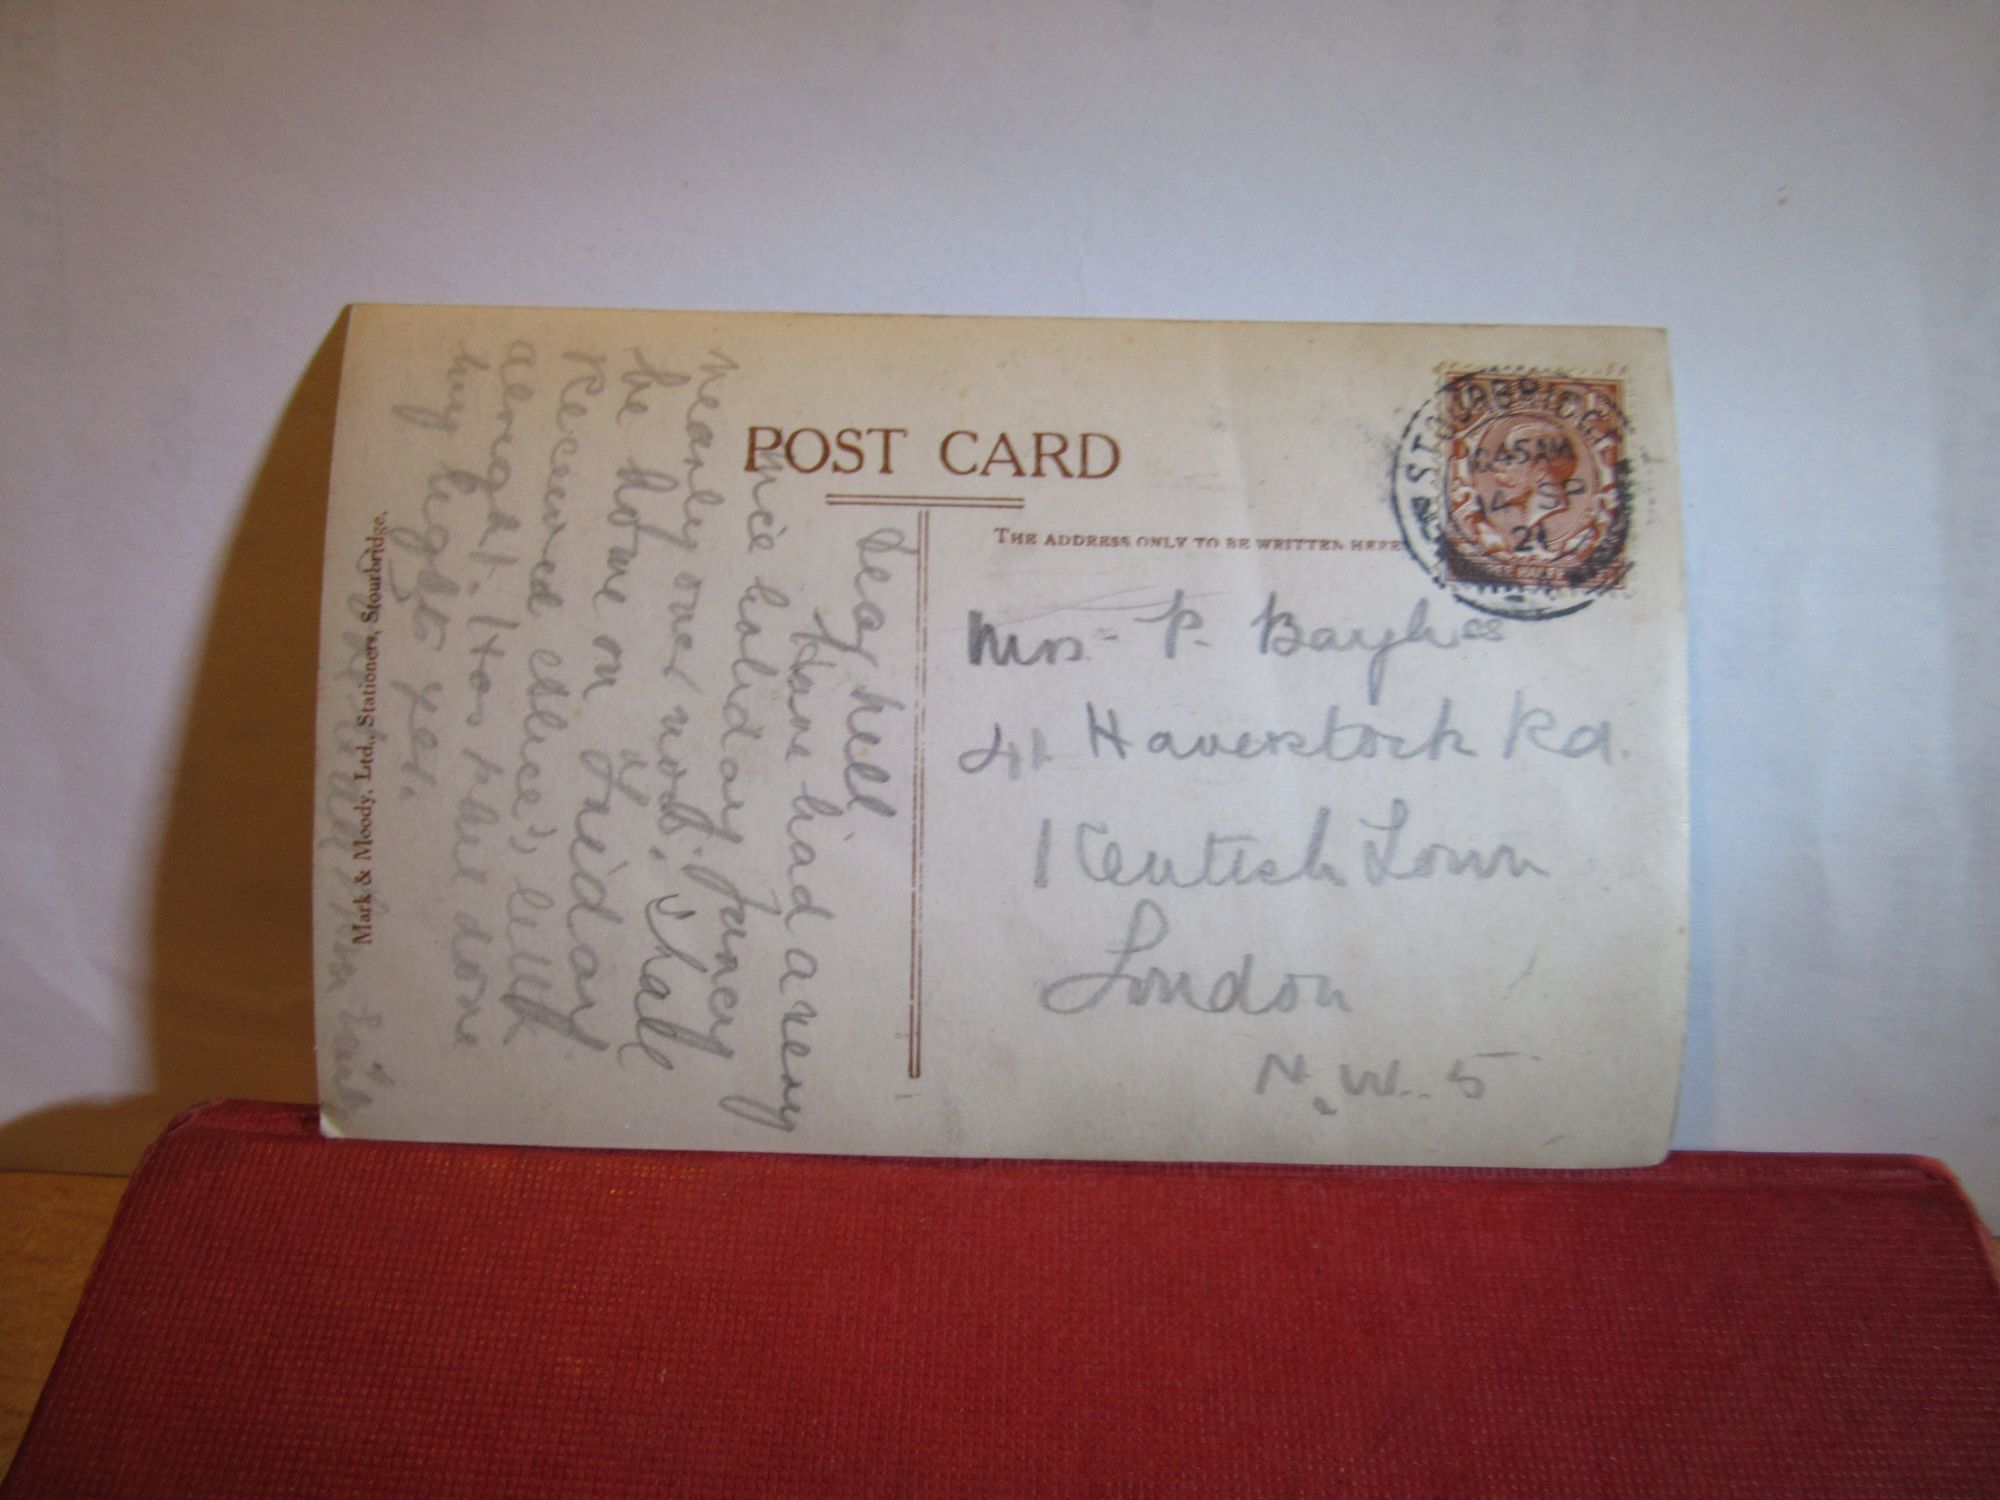 POST CARD
THE ADDRESS ONLY TO BE WRITTEN HERE
STOURBRIDGE
45AM
SP
21
Mrs P. Bayliss
41 Haverstock Rd.
Kentish Town
London
N.W. 5
Dear Nell
Have had a very
nice holiday, fancy
nearly over now. I shall
be home on Friday
Received Alice's letter
alright. Has she done
my
yet.
from Emily
Mark & Moody, Ltd., Stationers, Stourbridge.